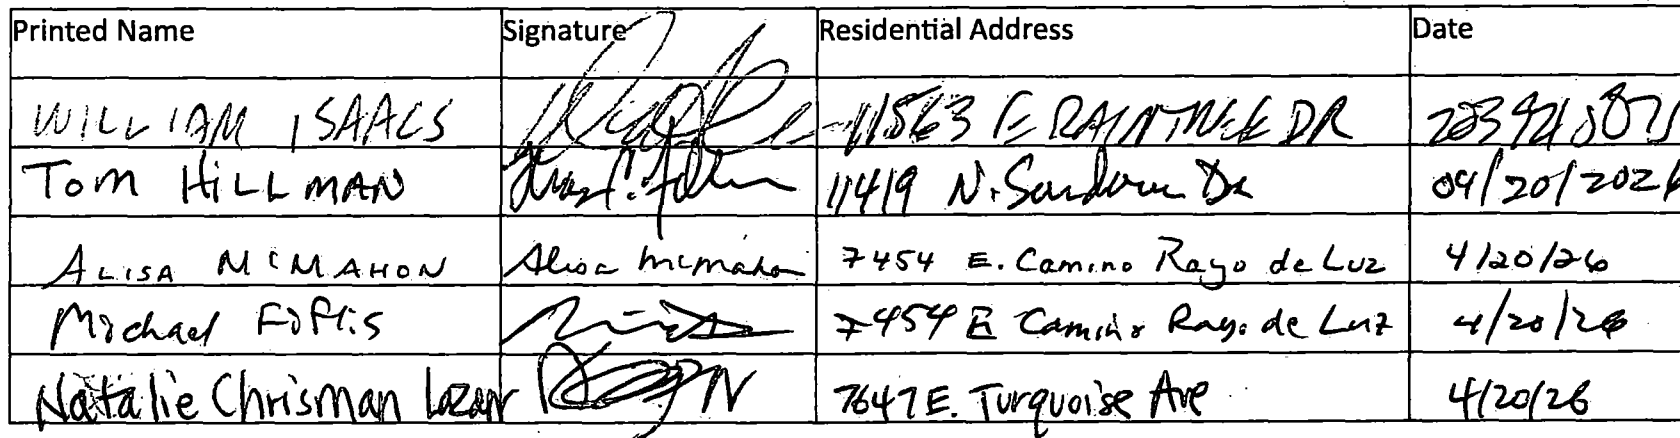 Printed Name Signature Residential Address Date
WILLIAM ISAACS 11563 E RAINTREE DR
TOM HILLMAN 11419 N. Sundown Dr 04/20/2026
ALISA MCMAHON Alisa McMahon 7454 E. Camino Rayo de Luz 4/20/26
Michael Foftis 7454 E Camino Rayo de Luz 4/20/26
Natalie Chrisman Lazarr 7647 E. Turquoise Ave 4/20/26